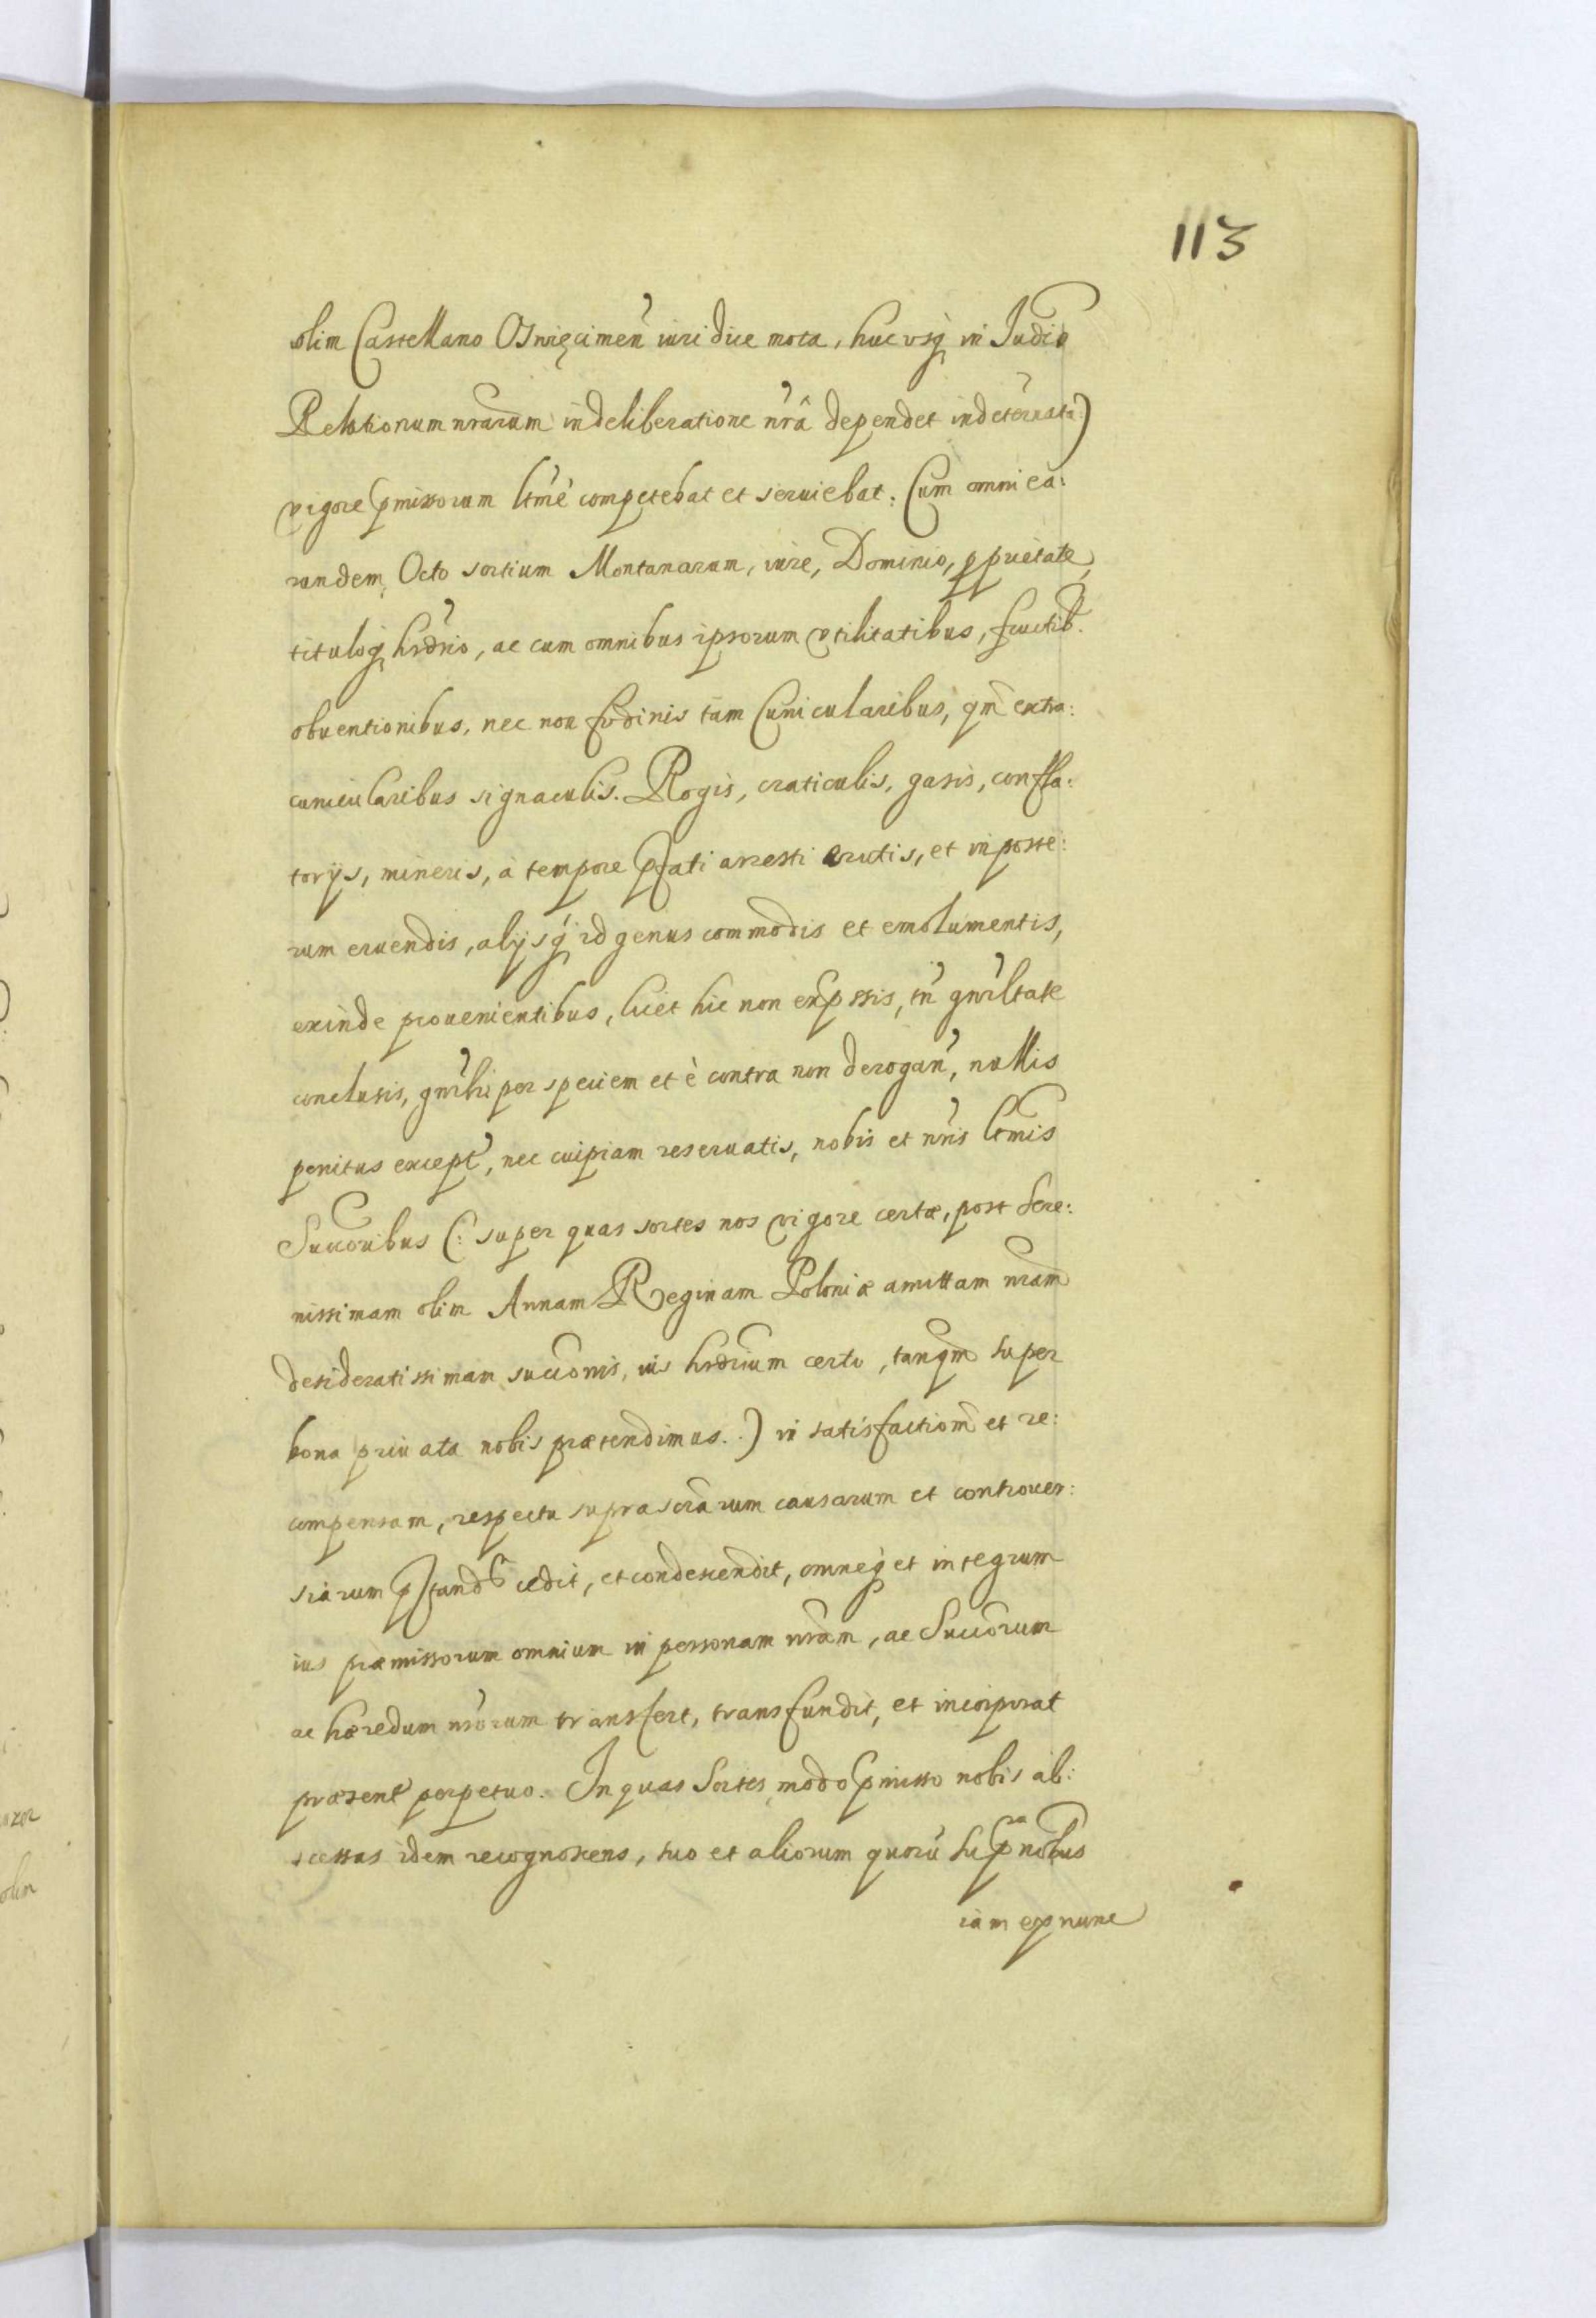 113
olim Castellano Oswięcimeñ iuridice mota, huc vsq in Judio
Relationum nrarum in deliberatione nrâ dependet indeterata:)
vigore pmissorum ltmè competebat et seruiebat. Cum omni ea:
rundem, Octo sortium Montanarum, iure, Dominio, pprietate,
tituloq hrdrio, ac cum omnibus ipsorum vtilitatibus, fructib.
obuentionibus, nec non fodinis tam Cunicularibus, qm extra:
cunicularibus signaculis. Rogis, craticulis, gasis, confla:
torijs, mineris, à tempore pfati arresti erutis, et in poste:
rum eruendis, alijsq id genus commodis et emolumentis,
exinde prouenientibus, licet hic non expssis, tñ gnrltate
conclusis, gnrli per speciem et è contra non derogañ, nullis
penitus except, nec cuipiam reseruatis, nobis et nris ltmis
Succoribus (: super quas sortes nos vigore certæ, post Sere:
nissimam olim Annam Reginam Poloniæ amittam nram
desideratissimam succonis, ius hrdrium certo, tanqm super
bona priuata nobis prætendimus.) in satisfactiom et re:
compensam, respectu suprascrarum causarum et controuer:
siarum pstand cedit, et condescendit, omneq et integrum
ius præmissorum omnium in personam nram, ac Succorum
ac hæredum nrorum transfert, transfundit, et incorporat
præsent perpetuo. In quas Sortes modo pmisso nobis ab:
scessas idem recognoscens, suo et aliorum quorũ supra nobus
iam ex nunc